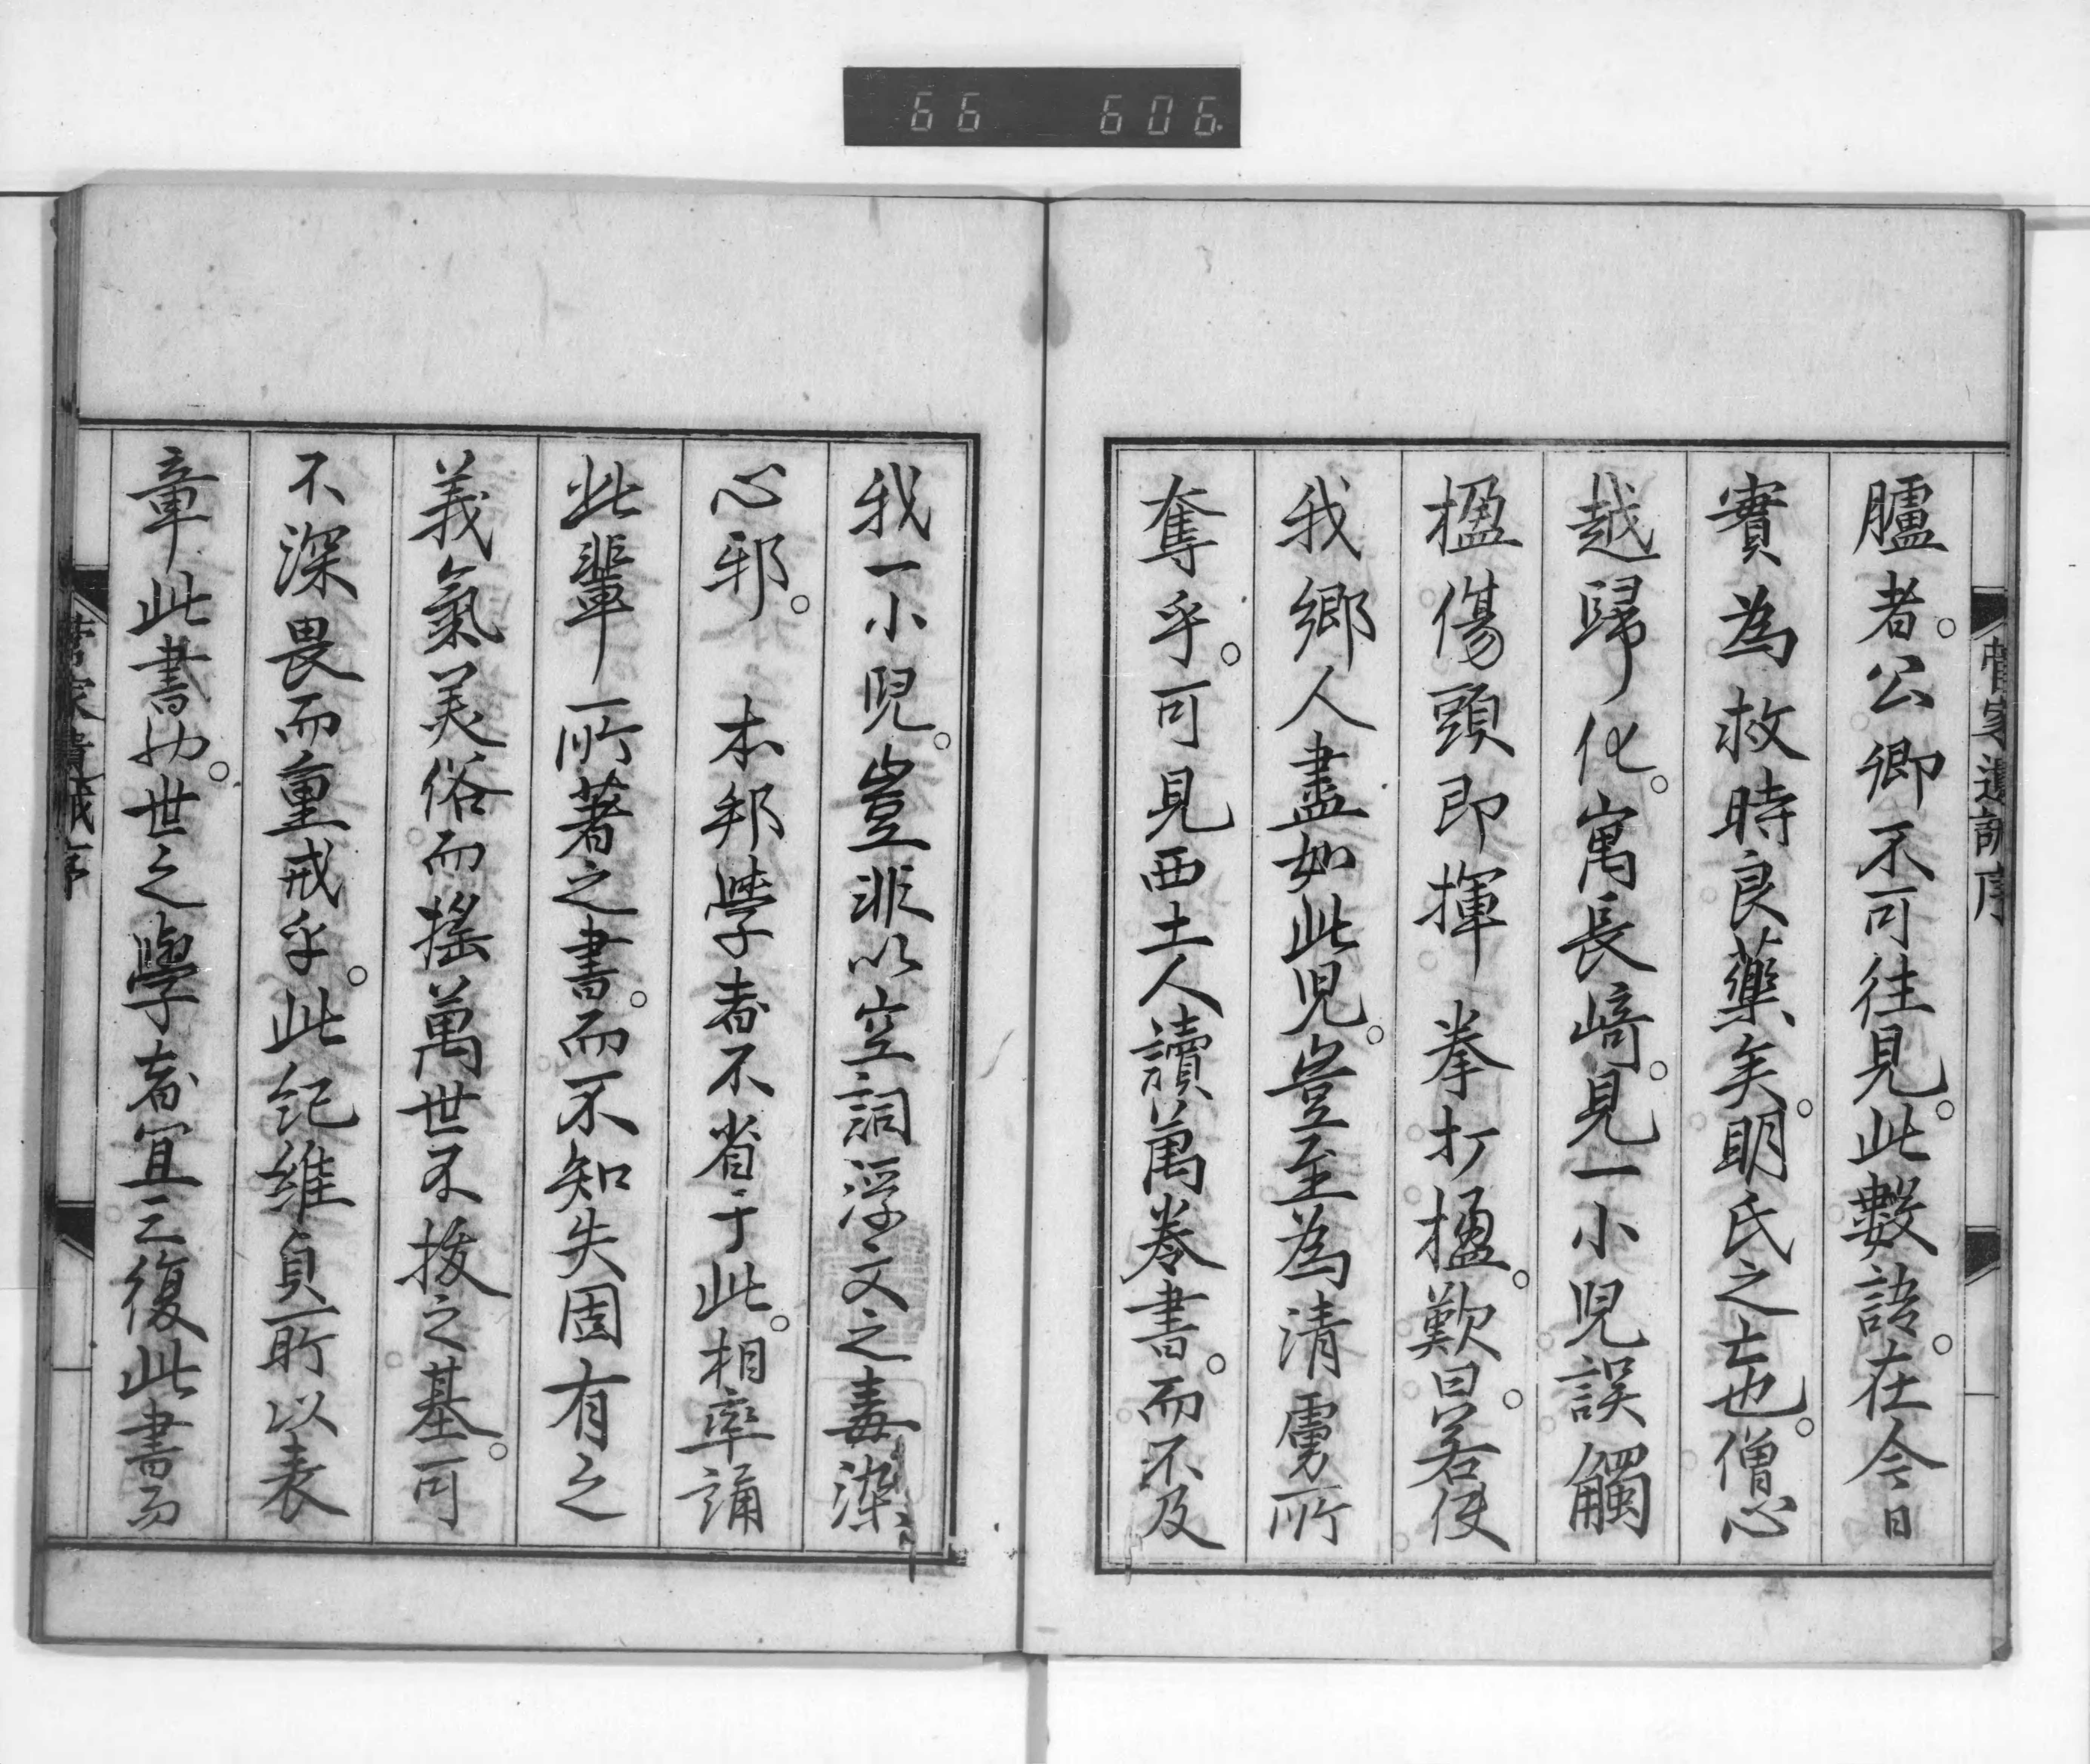 66 606.
菅家遺誡序
臚者。公卿不可往見。此數語。在今日
實為救時良藥矣。明氏之亡也。僧心
越歸化。寓長崎。見一小兒誤觸
楹傷頭即揮拳打楹。歎曰。若使
我鄉人盡如此児。豈至為清虜所
奪乎。可見西土人讀萬卷書。而不及
我一小兒。豈非以空詞浮文之毒染
心邪。本邦學者不省于此。相率誦
此輩所著之書。而不知失固有之
義氣美俗而搖萬世不拔之基。可
不深畏而重戒乎。此紀維貞所以表
章此書也。世之學者宜三復此書而
菅家遺誡序